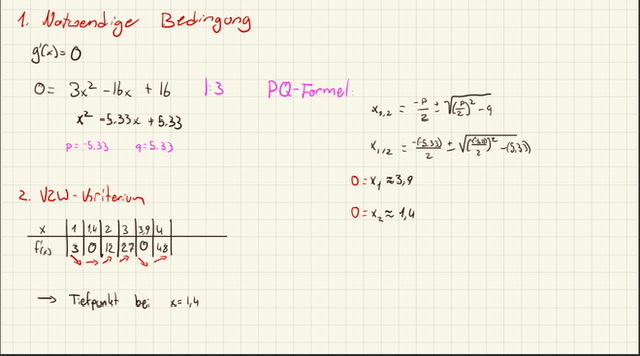 1. Notwendige Bedingung
g'(x) = 0
0 = 3x² - 16x + 16 |:3
x² - 5.33x + 5.33
p = -5.33 q = 5.33
PQ-Formel:
x₁,₂ = -p/2 ± √((p/2)² - q
x₁,₂ = -(-5.33)/2 ± √((-5,33)/2)² - (5,33)
0 = x₁ ≈ 3,9
0 = x₂ ≈ 1,4
2. VZW-Kriterium
x | 1 | 1,4 | 2 | 3 | 3,9 | 4 |
f'(x) | 3 | 0 | 12 | 27 | 0 | 48 |
↘ → ↗ ↗ ↘ ↗
→ Tiefpunkt bei x = 1,4